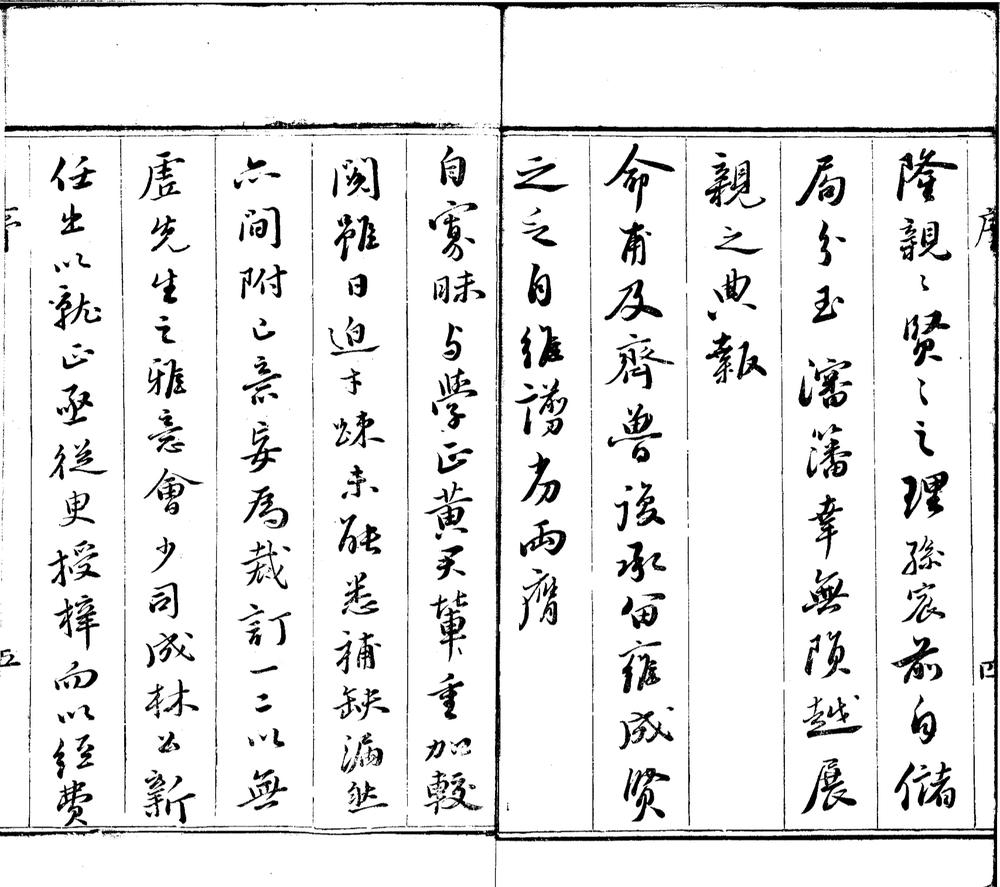 隆親〻賢〻之理孫宸前自儲
局分玉瀋藩幸無隕越展
親之典報
命甫及齊魯復承留雍成賢
之乏自維謭劣兩膺
自寡昧与學正黄天輦重加較
閱雖日迫才踈未能悉補缺漏然
亦間附已意妄為裁訂一二以無
盧先生之雅意會少司成林公新
任出以就正亟從更授梓而以經費
序
四
五